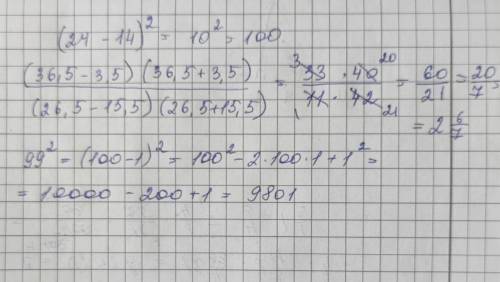 (24 - 14)² = 10² = 100
(36,5 - 3,5) (36,5 + 3,5) / (26,5 - 15,5) (26,5 + 15,5) = ³33 · 40²⁰ / ₁11 · 42₂₁ = 60/21 = 20/7 =
= 2 6/7
99² = (100 - 1)² = 100² - 2·100·1 + 1² =
= 10000 - 200 + 1 = 9801